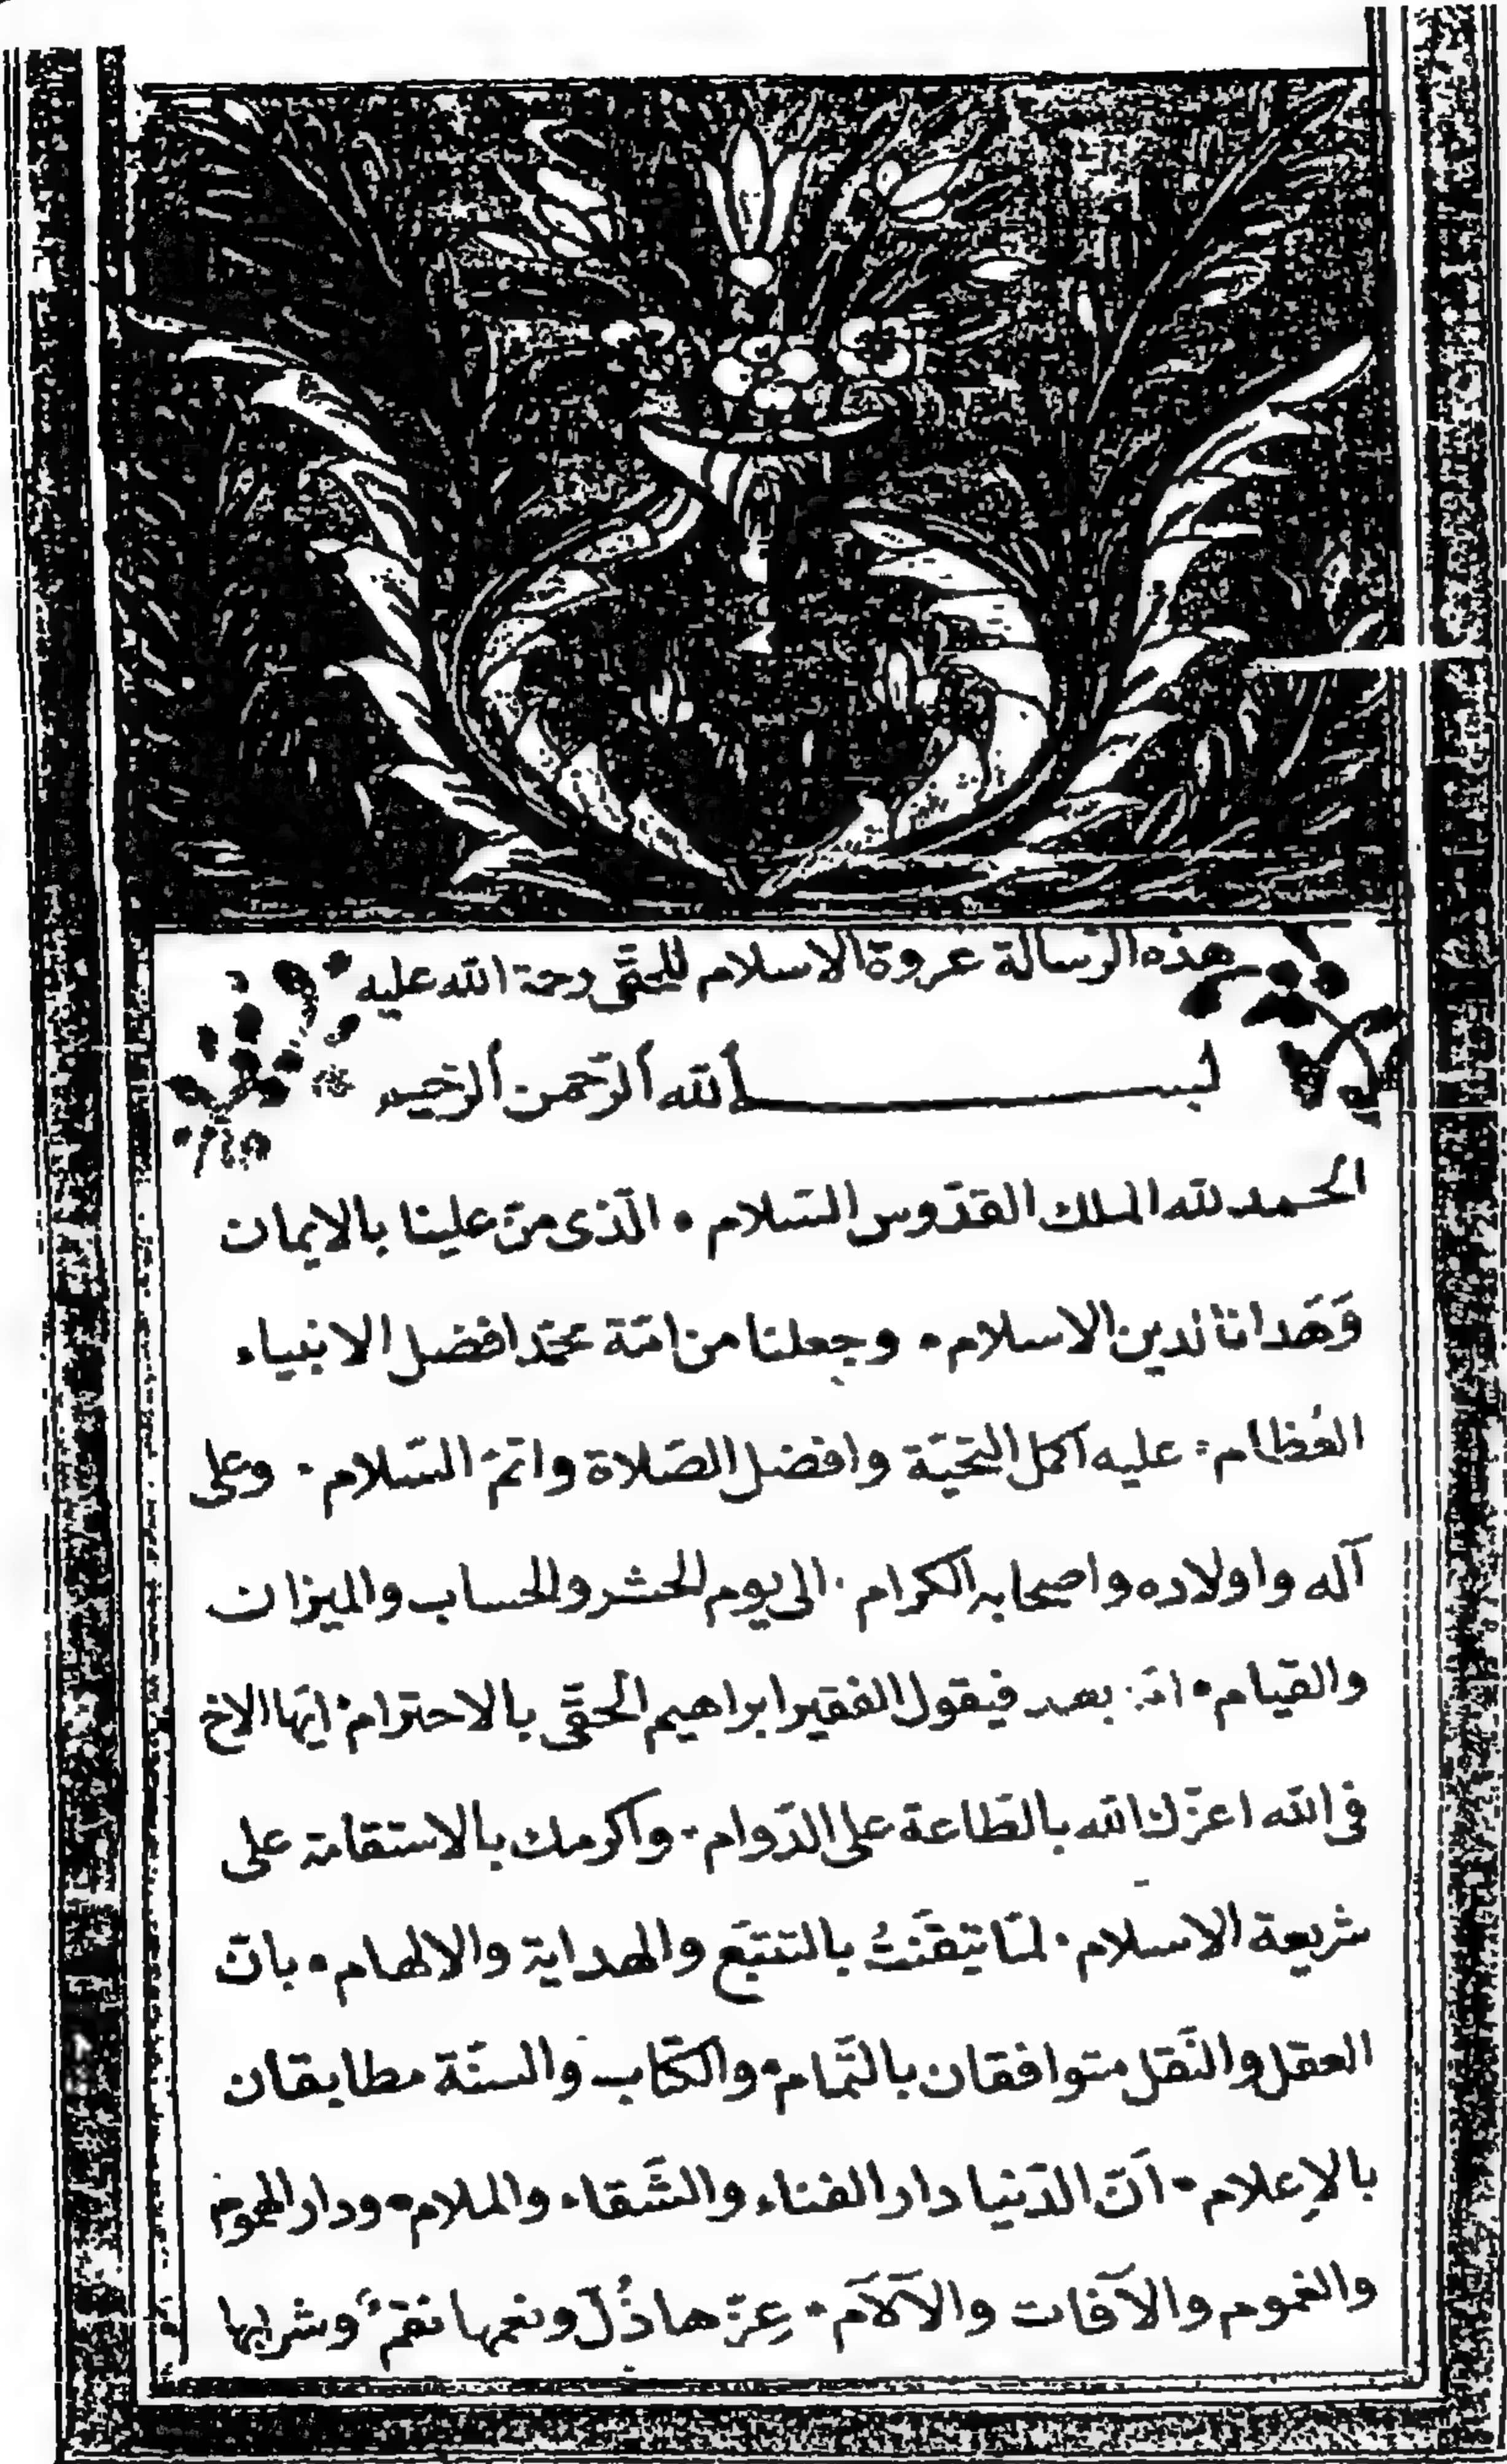 هذه الرسالة عروة الاسلام للحقّى رحمة الله عليه
بســــــم ألله ألرّحمن ألرّحيم
الحمد لله الملك القدّوس السّلام • الّذى منّ علينا بالايمان
وَهَدانا لدين الاسلام • وجعلنا من امّة محمّد افضل الانبياء
العُظام • عليه اكمل التحيّة وافضل الصّلاة واتمّ السّلام • وعلى
آله واولاده واصحابه الكرام • الى يوم الحشر والحساب والميزان
والقيام • امّا بعد فيقول الفقير ابراهيم الحقّى بالاحترام • ايّها الاخ
فى الله اعزّك الله بالطّاعة على الدّوام • واكرمك بالاستقامة على
شريعة الاسلام • لمّا تيقّنتُ بالتتبّع والهداية والالهام • بانّ
العقل والنّقل متوافقان بالتّمام • والكتاب والسنّة مطابقان
بالإعلام • اَنّ الدّنيا دار الفناء والشّقاء والملام • ودار الهموم
والغموم والآفات والآلآم • عِزّها ذُلّ ونعمها نقم • وشربها